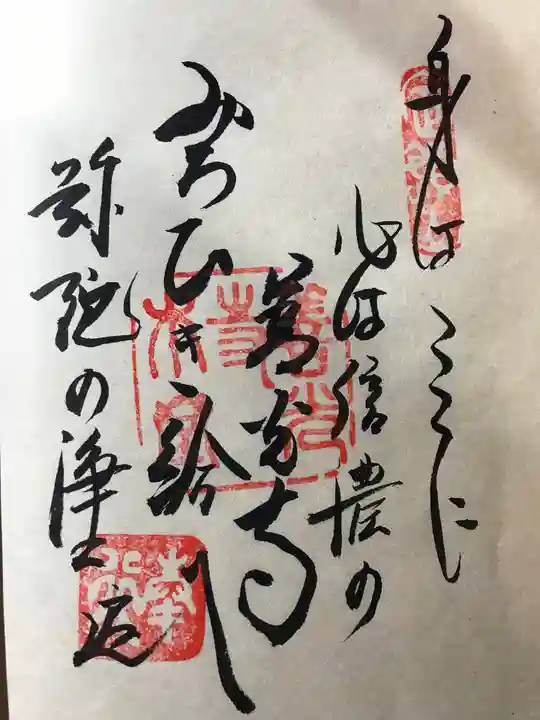 身はここに
心は信濃の
善光寺
みちひき給へ
弥陀の浄土へ